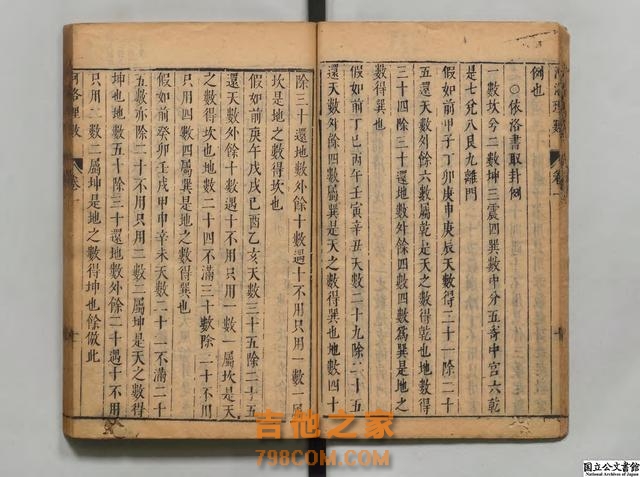 河洛理數 卷一
例也
○依洛書取卦例
一數坎兮二數坤三震四巽數中分五寄中宮六乾
是七兌八艮九離門
假如前甲子丁卯庚申庚辰天數得三十一除二十
五還天數外餘六數屬乾是天之數得乾也地數得
三十四除三十還地數外餘四四數爲巽是地之
數得巽也
假如前丁巳丙午壬寅辛丑天數二十九除二十五
還天數外餘四數屬巽是天之數得巽也地數四十
除三十還地數外餘十數遇十不用只用一數一屬
坎是地之數得坎也
假如前庚午戊戌己酉乙亥天數三十五除二十五
還天數外餘十數遇十不用只用一數一屬坎是天
之數得坎也地數二十四不滿三十數除二十不用
只用四數四屬巽是地之數得巽也
假如前癸卯壬戌甲申辛未天數二十二不滿二十
五數亦除二十不用只用二數二屬坤是天之數得
坤也地數五十除三十還地數外餘二十遇十不用
只用二數二屬坤是地之數得坤也餘倣此
河洛理數 卷一 十
吉他之家
798COM.COM
国立公文書館
National Archives of Japan